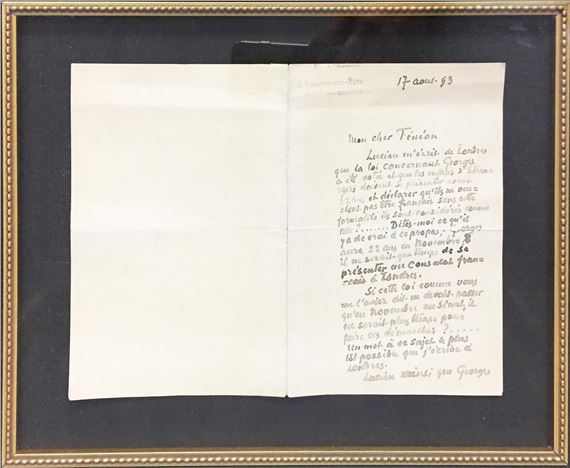 17 aout-93
Mon cher Fénéon
Lucien m'écrit de Londres
que la loi concernant Georges
a été voté et que les enfants d'étran=
=gers doivent se presenter avant
22 ans et déclarer qu'ils ne veu=
=lent pas être français sans cette
formalité ils sont considérés comme
tels ?....... Dites-moi ce qu'il
y a de vrai à ce propos, Georges
aura 22 ans en Novembre &
il ne serait-que temps de se
présenter au Consulat fran=
=cais à Londres.
Si cette loi comme vous
me l'aviez dit-ne devait-passer
qu'en Novembre au Sénat, il
ne serait-plus temps pour
faire ces démarches ?.....
un mot à ce sujet le plus
tôt possible que j'écrive à
Londres.
Lucien ainsi que Georges